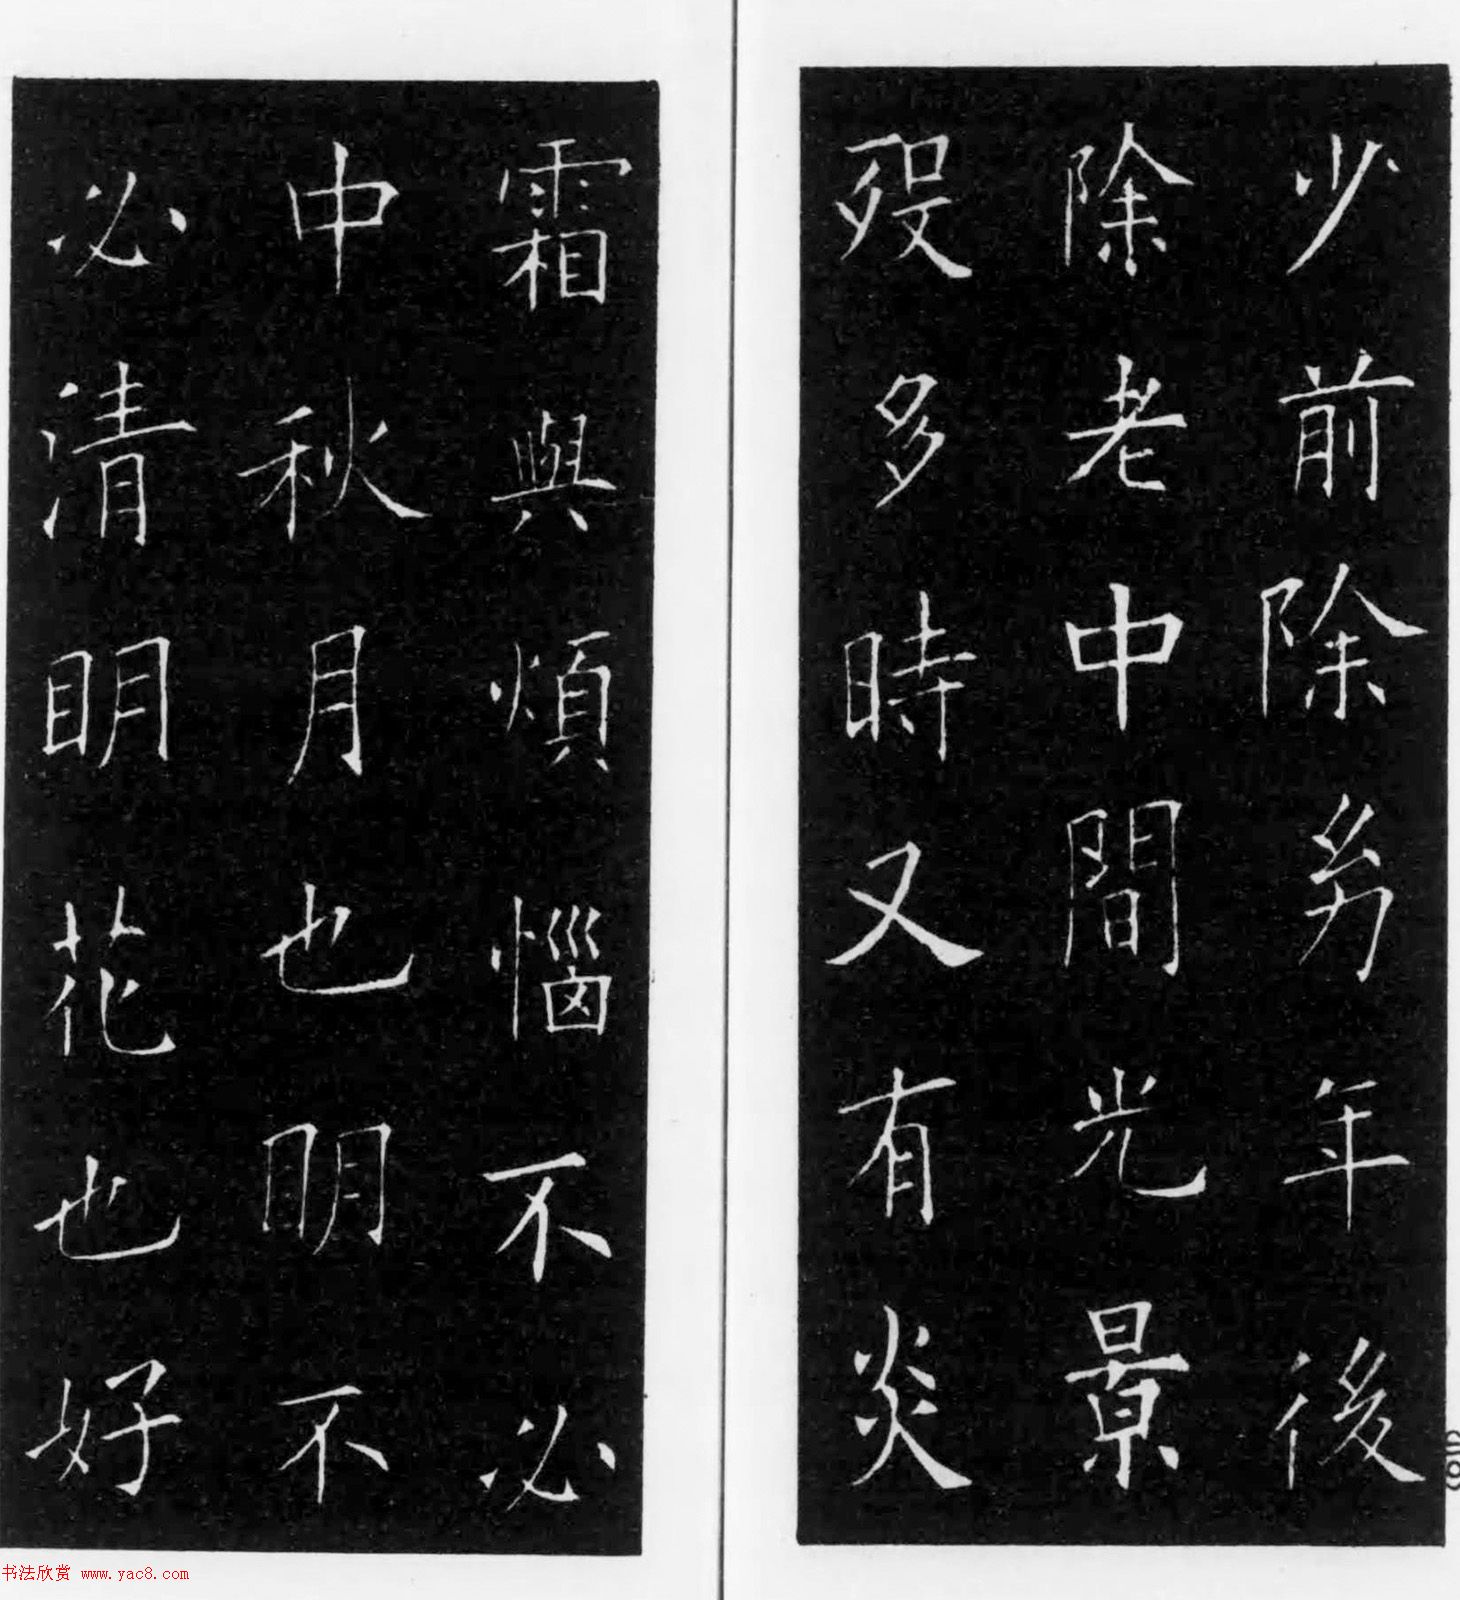 少前除幼年後
除老中間光景
歿多時又有炎
霜與煩惱不必
中秋月也明不
必清明花也好
书法欣赏 www.yac8.com